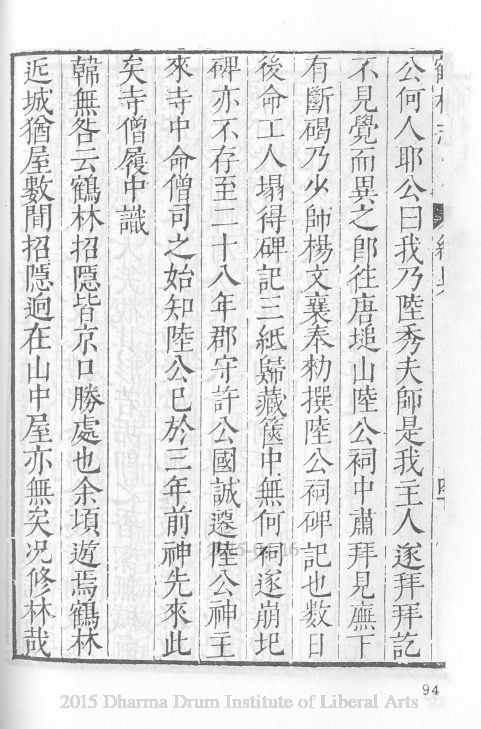 公何人耶公曰我乃陸秀夫師是我主人遂拜拜訖
不見覺而異之卽徃唐塠山陸公祠中肅拜見廡下
有斷碣乃少師楊文襄奉勑撰陸公祠碑記也數日
後命工人塌得碑記三紙歸藏篋中無何祠遂崩圮
碑亦不存至二十八年郡守許公國誠遷陸公神主
來寺中命僧司之始知陸公已於三年前神先來此
矣寺僧履中識
韓無咎云鶴林招隱皆京口勝處也余頃遊焉鶴林
近城猶屋數間招隱逈在山中屋亦無矣况修林哉
94
2015 Dharma Drum Institute of Liberal Arts